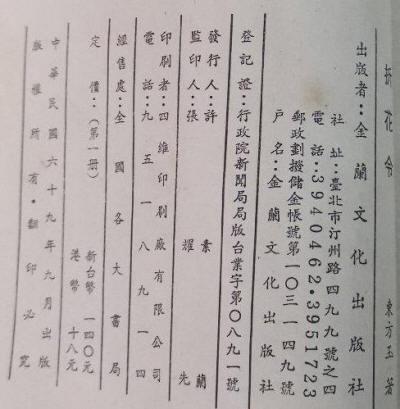 折花令 東方玉著
出版者：金蘭文化出版社
社址：臺北市汀州路四九九號之四
電話：3940462.3951723
郵政劃撥儲金帳號第一〇三一四九號
戶名：金蘭文化出版社
登記證：行政院新聞局局版台業字第〇八九一號
發行人：許素蘭
監印人：張耀先
印刷者：四維印刷廠有限公司
電話：九五一八九一四
經售處：全國各大書局
定價：（第一冊） 新台幣 一四〇元
港幣 十八元
中華民國六十九年九月出版
版權所有‧翻印必究